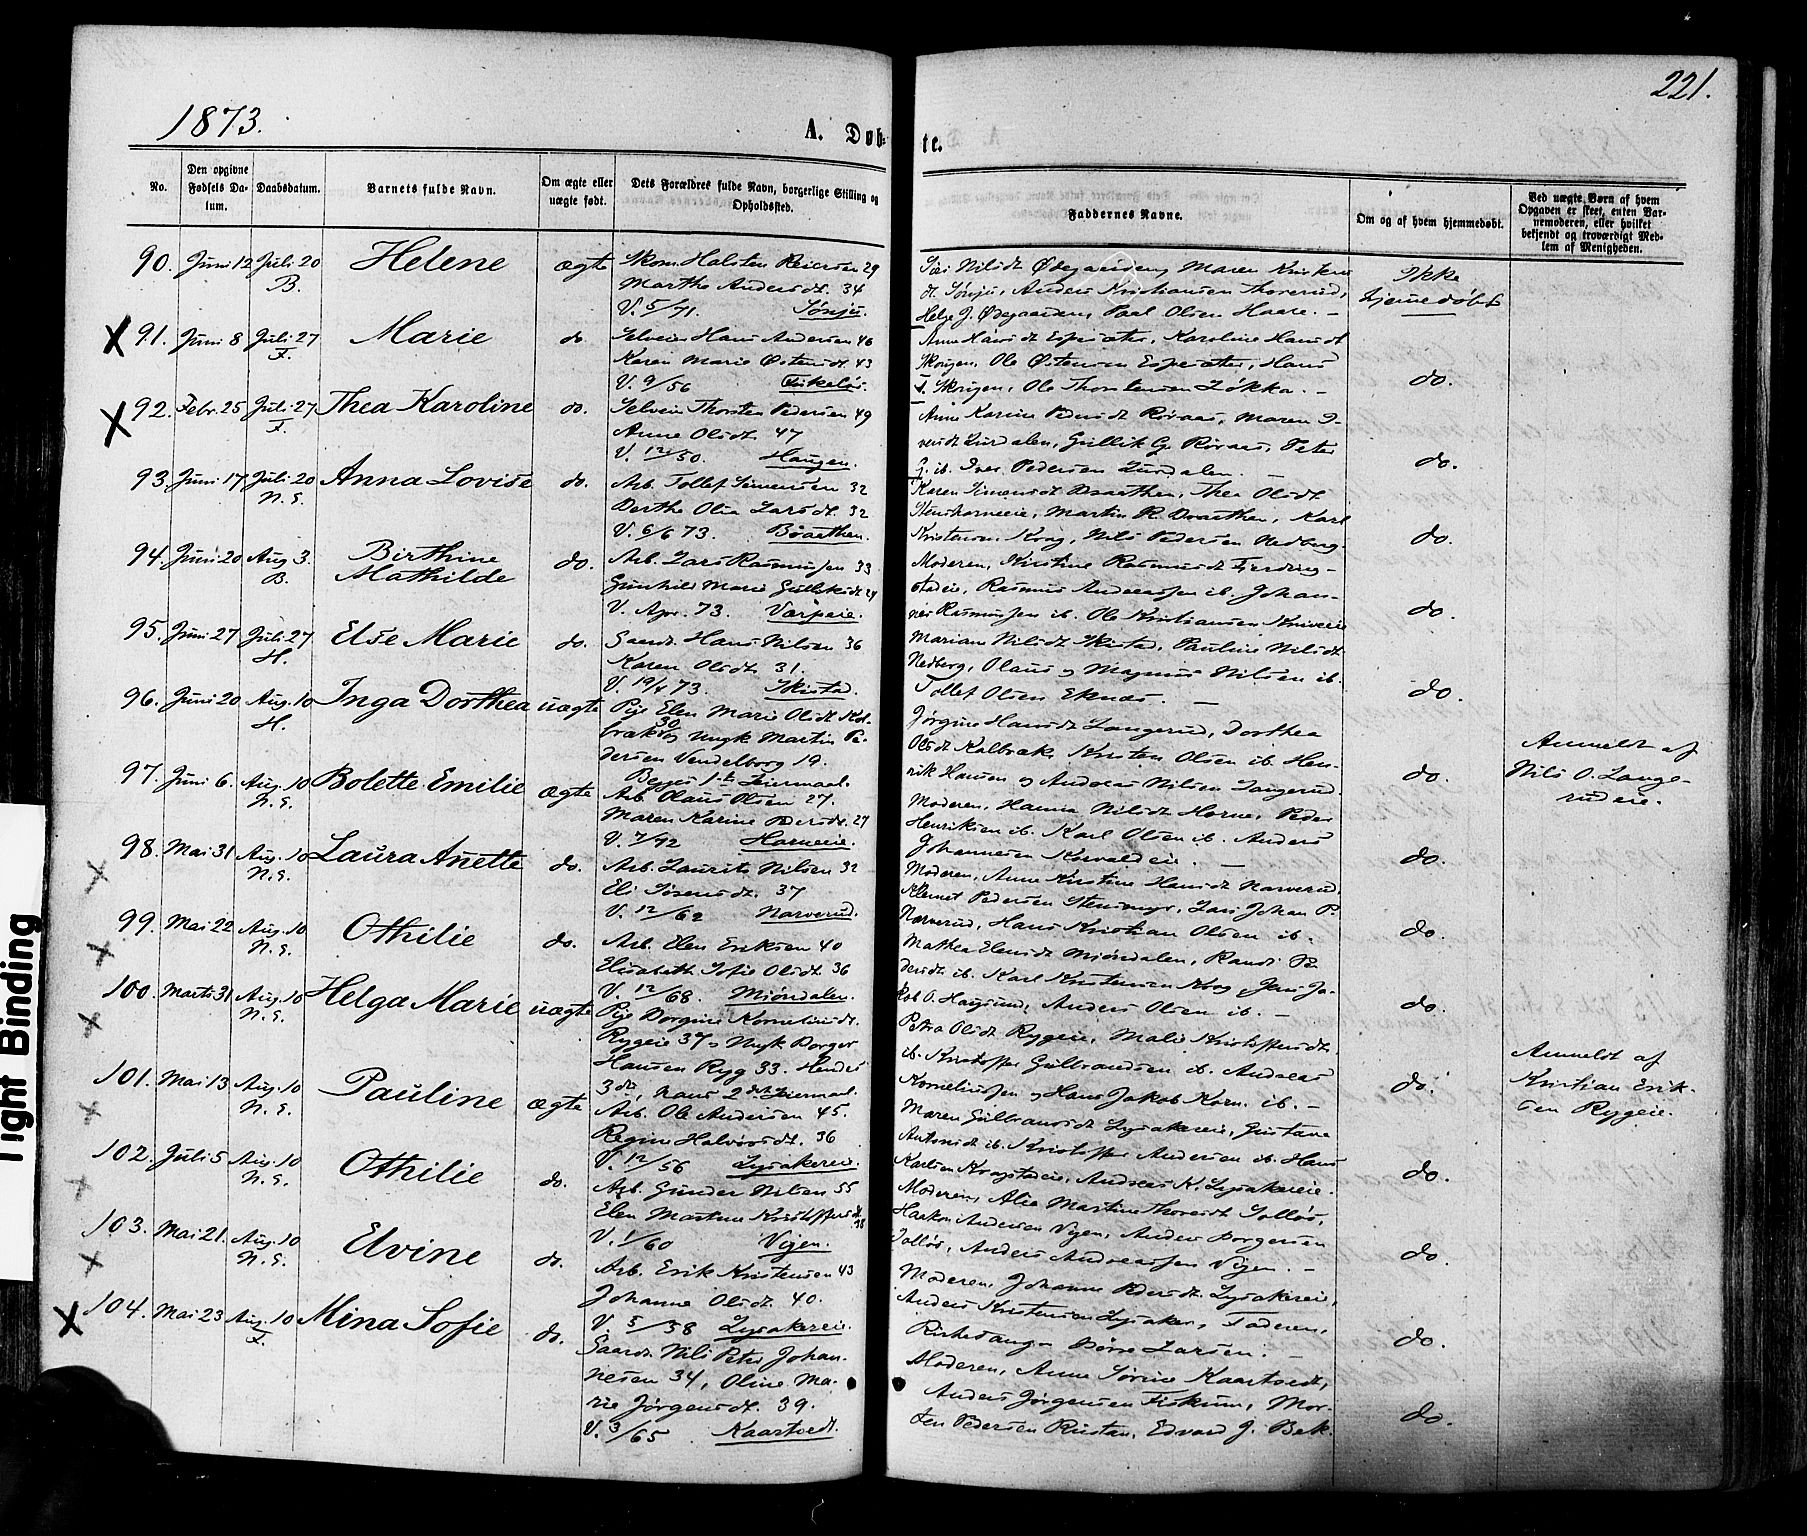 1873.
221.
A. Døb-
te.
No.
Den opgivne Fødsels Datum.
Daabsdatum.
Barnets fulde Navn.
Om ægte eller uægte født.
Dets Forældres fulde Navn, borgerlige Stilling og Opholdssted.
Faddernes Navne.
Om og af hvem hjemmedøbt.
Ved uægte Børn af hvem Opgaven er skeet, enten Barnemoderen, eller hvilket bekjendt og troværdigt Medlem af Menigheden.
90. Juni 12 Juli 20 B. Helene ægte
Skom. Halsten Reiersen 29
Marthe Andersdt. 34
V. 5/71. Sønju.
Siri Nilsdt Ødegaarden, Maren Kristens
dt. Sønju, Anders Kristiansen Thorerud,
Helge J. Ødegaarden, Paal Olsen Haare. —
Ikke
hjemmedøbt
91. Juni 8 Juli 27 F. Marie do.
Selveier Hans Andersen 46
Karen Marie Østensdt. 43
V. 9/56 Fiskeløs.
Anne Hansdt Espesæter, Karoline Hansdt
Skrigen, Ole Østensen Espesæter, Hans
Skrigen, Ole Thorstensen Løkka. —
do.
92. Febr. 25 Juli 27 F. Thea Karoline do.
Selveier Thorsten Pedersen 49
Anne Olsdt 47
V. 12/50. Haugen.
Anne Karine Pedersdt Røraas, Maren I-
versdt Lurdalen, Gullik G. Røraas, Peter
G. ib. Iver Pedersen Lurdalen. —
do.
93. Juni 17 Juli 20 N.E. Anna Lovise do.
Arb. Tollef Simensen 32
Berthe Olia Larsdt. 32
V. 6/6 73. Bøaethen.
Karen Simensdt Braathen, Thea Olsdt
Martin R. Braathen, Karl
Kristensen Krog, Nils Pedersen Nedberg.
do.
94. Juni 20 Aug. 3. B. Birthine Mathilde do.
Arb. Lars Rasmussen 33
Gunhild Marie Gulliksdt 24
V. Apr. 73. Varpeie.
Moderen, Kristine Rasmusdt Fjerding-
stadeie, Rasmus Andreassen ib. Johan-
nes Rasmussen ib. Ole Kristiansen Kniveeie
do.
95. Juni 27 Juli 27 H. Else Marie do.
Gaardr. Hans Nilsen 36
Karen Olsdt 31.
V. 19/4 73. Skistad.
Mariane Nilsdt Skistad, Pauline Nilsdt
Nedberg, Olaus og Magnus Nilsen ib.
Tollef Olsen Eknæs. —
do.
96. Juni 20 Aug. 10 H. Inga Dorthea uægte
Pige Elen Marie Olsdt Kol-
bræk 30 og Ungk Martin Pe-
dersen Vendelborg 19.
Begges 1ste Leiermaal.
Jørgine Hansdt Langerud, Dorthea
Olsdt Kolbræk Kristen Olsen ib. Hen-
rik Hansen og Andreas Nilsen Langerud.
do.
Anmeldt af
Nils O. Lange-
rudeie.
97. Juni 6. Aug. 10 N.E. Bolette Emilie ægte
Arb. Olaus Olsen 27.
Maren Karine Pedersdt. 27
V. 7/72 Horneeie.
Moderen, Hanna Nilsdt Horne, Peder
Henriksen ib. Karl Olsen ib. Anders
Johannesen Korvaldeie. —
do.
98. Mai 31 Aug. 10 N.E. Laura Anette do.
Arb. Laurits Nilsen 32
Eli Sørensdt. 37
V. 12/62 Narverud.
Moderen, Anne Kristine Hansdt Narverud.
Klemet Pedersen Stenmyr, Lars Johan P.
Narverud, Hans Kristian Olsen ib.
do.
99. Mai 22 Aug. 10 N.E. Othilie do.
Arb. Elen Eriksen 40
Elisabeth Sofie Olsdt. 36
V. 12/68. Miøndalen.
Mathea Elensdt Miøndalen, Randi Pe
dersdt ib. Karl Kristensen Krog, Jens Ja-
kob O. Hagsund, Anders Olsen ib. —
do.
100. Marts 31 Aug. 10 N.E. Helga Marie uægte
Pige Dorgine Korneliusdt.
Rygeie 37 og Ungk Borger
Hansen Ryg 33. Hendes
3die, hans 2det Leiermaal.
Petra Olsdt Rygeie, Malie Kristoffersdt
ib. Kristoffer Gulbrandsen ib. Andreas
Korneliussen og Hans Jakob Korn. ib. —
do.
Anmeldt af
Kristian Erik-
sen Rygeie.
101. Mai 13 Aug. 10 N.E. Pauline ægte
Arb. Ole Andersen 45.
Regine Halvorsdt. 36
V. 12/56 Lysakereie.
Maren Gulbransdt Lysakereie, Gustava
Antonsdt ib. Kristoffer Andersen ib. Hans
Karlsen Krogstadeie, Andreas K. Lysakereie.
do.
102. Juli 5 Aug. 10 N.E. Othilie do.
Arb. Gunder Nilsen 55
Elen Martine Kristoffersdt. 38
V. 1/60 Vejen.
Moderen, Alie Martine Thoresdt Solløs,
Haakon Andersen Vejen, Anders Borgersen
Solløs, Anders Andreassen Vejen. —
do.
103. Mai 21. Aug. 10 N.E. Elvine do.
Arb. Erik Kristensen 43
Johanne Olsdt. 40.
V. 5/58 Lysakereie.
Moderen, Johanne Pedersdt. Lysakereie,
Anders Kristensen Lysaker, Faderen,
Børre Larsen. —
do.
104. Mai 23 Aug. 10 F. Mina Sofie do.
Gaardr. Nils Peter Johan-
nesen 34, Oline Ma-
rie Jørgensdt. 39.
V. 3/65 Kaartvedt.
Moderen, Anne Sørine Kaartvedt,
Anders Jørgensen Fiskum, Mor-
ten Pedersen Rustan, Edvard J. Bek.
do.
Tight Binding